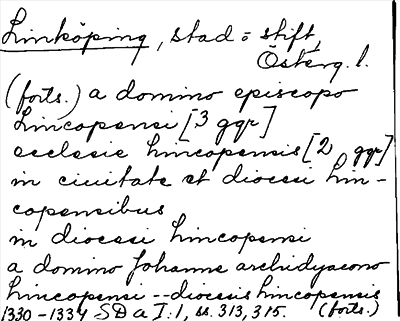 Linköping, stad = stift,
Österg. l.
(forts.) a domino episcopo
Lincopensi [3 ggr]
ecclesie lincopensis [2 ggr]
in ciuitate et diocesi lin-
copensibus
in diocesi lincopensi
a domino Johanne archidyacono
lincopensi -- diocesis lincopensis
1330-1334 SD a I:1, ss. 313, 315. (forts.)